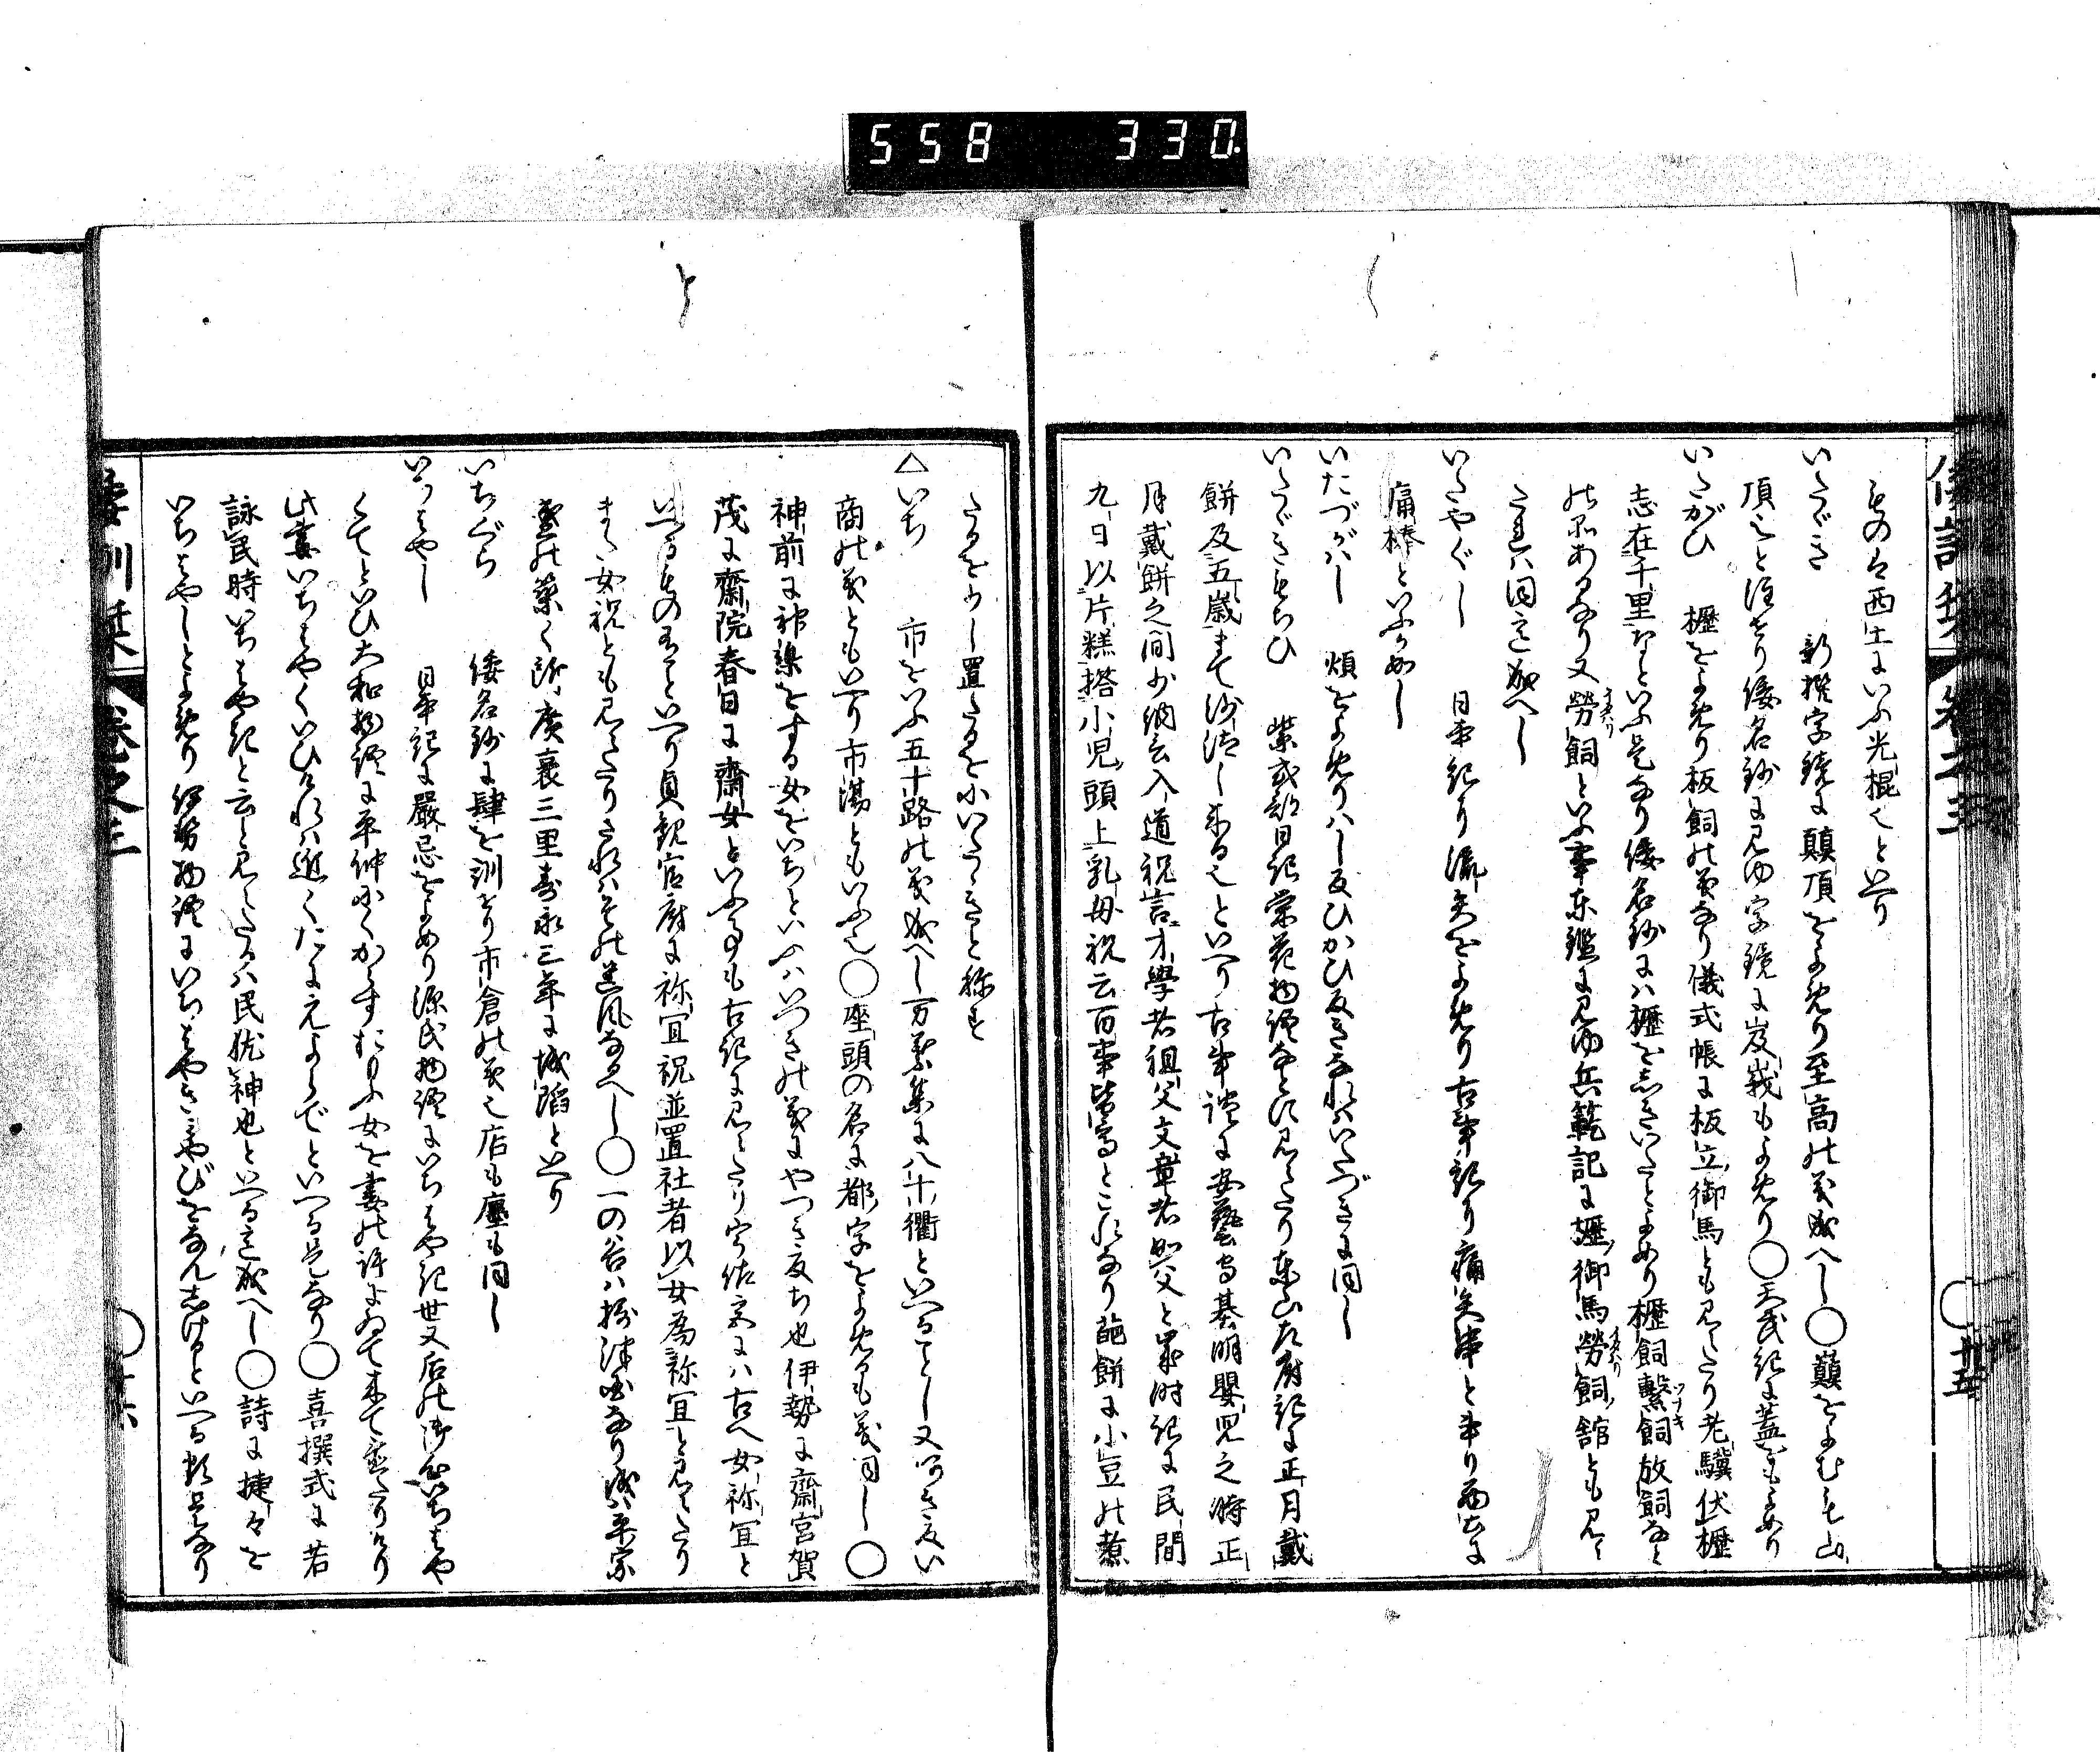 558 330.
倭訓栞 卷之三 ○十五
ものを西土にいふ光棍也といへり
いたゞき 新撰字鏡に顛頂をよめり至高の義成へし○巓をよむも山
頂也と注せり倭名鈔に見ゆ字鏡に岌峩もよめり○天武紀に蓋をもよめり
いたがひ 櫪をよめり板飼の義なり儀式帳に板立御馬とも見えたり老驥伏櫪
志在千里なといふ是なり倭名鈔には櫪をしきいたとよめり櫪飼繋飼放飼なと
の品あるなり又勞飼といふ事東鑑に見ゆ兵範記に櫪御馬勞飼舘とも見え
たれは同し成へし
いたやぐし 日本紀に流矢をよめり古事記に痛矢串と書り西土に
痛棒といふか如し
いたづがはし 煩をよめりはし反ひかひ反きなれはいたづきに同し
いたゞきもちひ 紫式部日記榮花物語なとに見えたり東山左府記に正月戴
餅及五歳まて沙汰し來る也といへり古事談に安藝守基明嬰児之時正
月戴餅之間少納言入道祝言才學者祖父文章者如父と歳時記に民間
九日以片糕搭小児頭上乳母祝云百事皆高とこれなり葩餅に小豆の煮
たるを少し置たるを小いたゝきと称す
△いち 市をいふ五十路の義成へし万葉集に八十衢といへることし又つき反い
商の義ともいへり市湯ともいふ也○座頭の名に都字をよめるも義同し○
神前に神樂をする女をいちといふはいつきの義にやつき反ち也伊勢に齋宮賀
茂に齋院春日に齋女といふ事も古記に見えたり宇佐宮には古へ女祢冝と
いへるもの有といへり貞觀官府に祢冝祝並置社者以女為祢冝と見えたり
また女祝とも見えたりされはその遺風なるへし○一の谷は摂津国なり城は平家
の築く所廣袤三里壽永三年に城陷といへり
いちぐら 倭名鈔に肆を訓せり市倉の義也店も廛も同し
いちはやし 日本記に嚴忌をよめり源氏物語にいちはや記世又后の御心いちはや
くてといひ大和物語に平仲にくからすおもふ女を妻の許にゐて来て置たりけり
此妻いちはやくいひけれは近くたにえよらでといへる是なり○喜撰式に若
詠民時いちはや記と云と見えたるは民犹神也といへる意成へし○詩に捷々を
いちはやしとよめり伊勢物語にいちはやきみやびをなんしけるといへる類是なり
倭訓栞 卷之三 ○十六